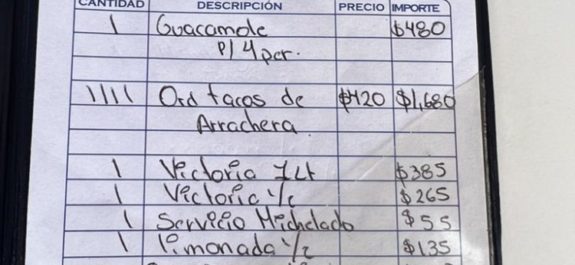 CANTIDAD DESCRIPCIÓN PRECIO IMPORTE
1 Guacamole $480
p/ 4 per.
1111 Ord tacos de $420 $1,680
Arrachera
1 Victoria 1Lt $385
1 Victoria 1/2 $265
1 Servicio Michelado $55
1 limonada 1/2 $135